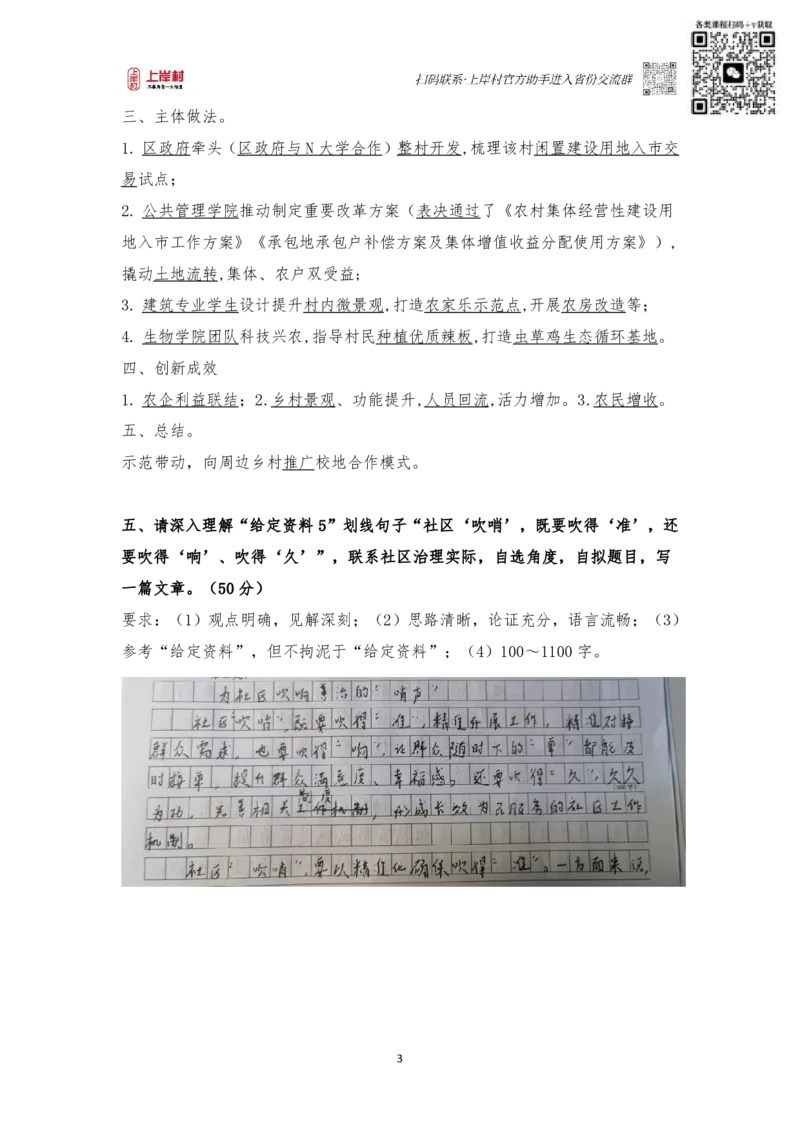 各类课程扫码+v获取
上岸村
不要再当一次陪跑
扫码联系·上岸村官方助手进入省份交流群
三、主体做法。
1. 区政府牵头（区政府与 N 大学合作）整村开发,梳理该村闲置建设用地入市交
易试点；
2. 公共管理学院推动制定重要改革方案（表决通过了《农村集体经营性建设用
地入市工作方案》《承包地承包户补偿方案及集体增值收益分配使用方案》），
撬动土地流转,集体、农户双受益；
3. 建筑专业学生设计提升村内微景观,打造农家乐示范点,开展农房改造等；
4. 生物学院团队科技兴农,指导村民种植优质辣板,打造虫草鸡生态循环基地。
四、创新成效
1. 农企利益联结；2.乡村景观、功能提升,人员回流,活力增加。3.农民增收。
五、总结。
示范带动，向周边乡村推广校地合作模式。
五、请深入理解“给定资料 5”划线句子“社区‘吹哨’，既要吹得‘准’，还
要吹得‘响’、吹得‘久’”，联系社区治理实际，自选角度，自拟题目，写
一篇文章。（50 分）
要求：（1）观点明确，见解深刻；（2）思路清晰，论证充分，语言流畅；（3）
参考“给定资料”，但不拘泥于“给定资料”；（4）100～1100 字。
为社区吹响善治的“哨声”
社区“吹哨”，既要吹得“准”，精准开展工作，精准对接
群众需求，也要吹得“响”，让群众随时下的“单”都能及
时接单，提升群众满意度、幸福感。还要吹得“久”，久久
(100字)
制度
为功，完善相关工作机制，形成长效为民服务的社区工作
机制。
社区“吹哨”，要以精准化确保吹得“准”。一方面来说，
3